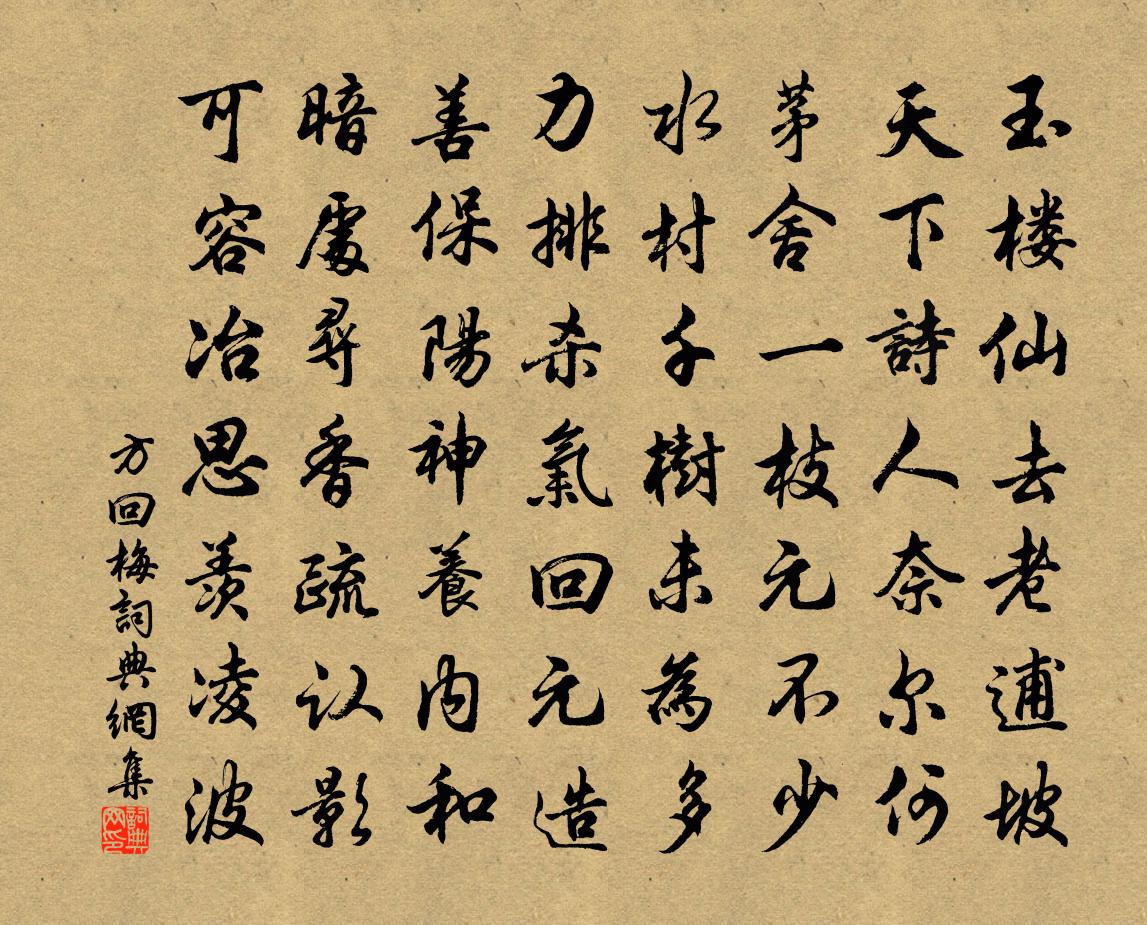 玉楼仙去老逋坡
天下詩人奈尔何
茅舍一枝元不少
水村千樹未為多
力排杀氣回元造
善保陽神養内和
暗處尋香疏认影
可容冶思羨凌波
方回梅詞典網集
詞典网印